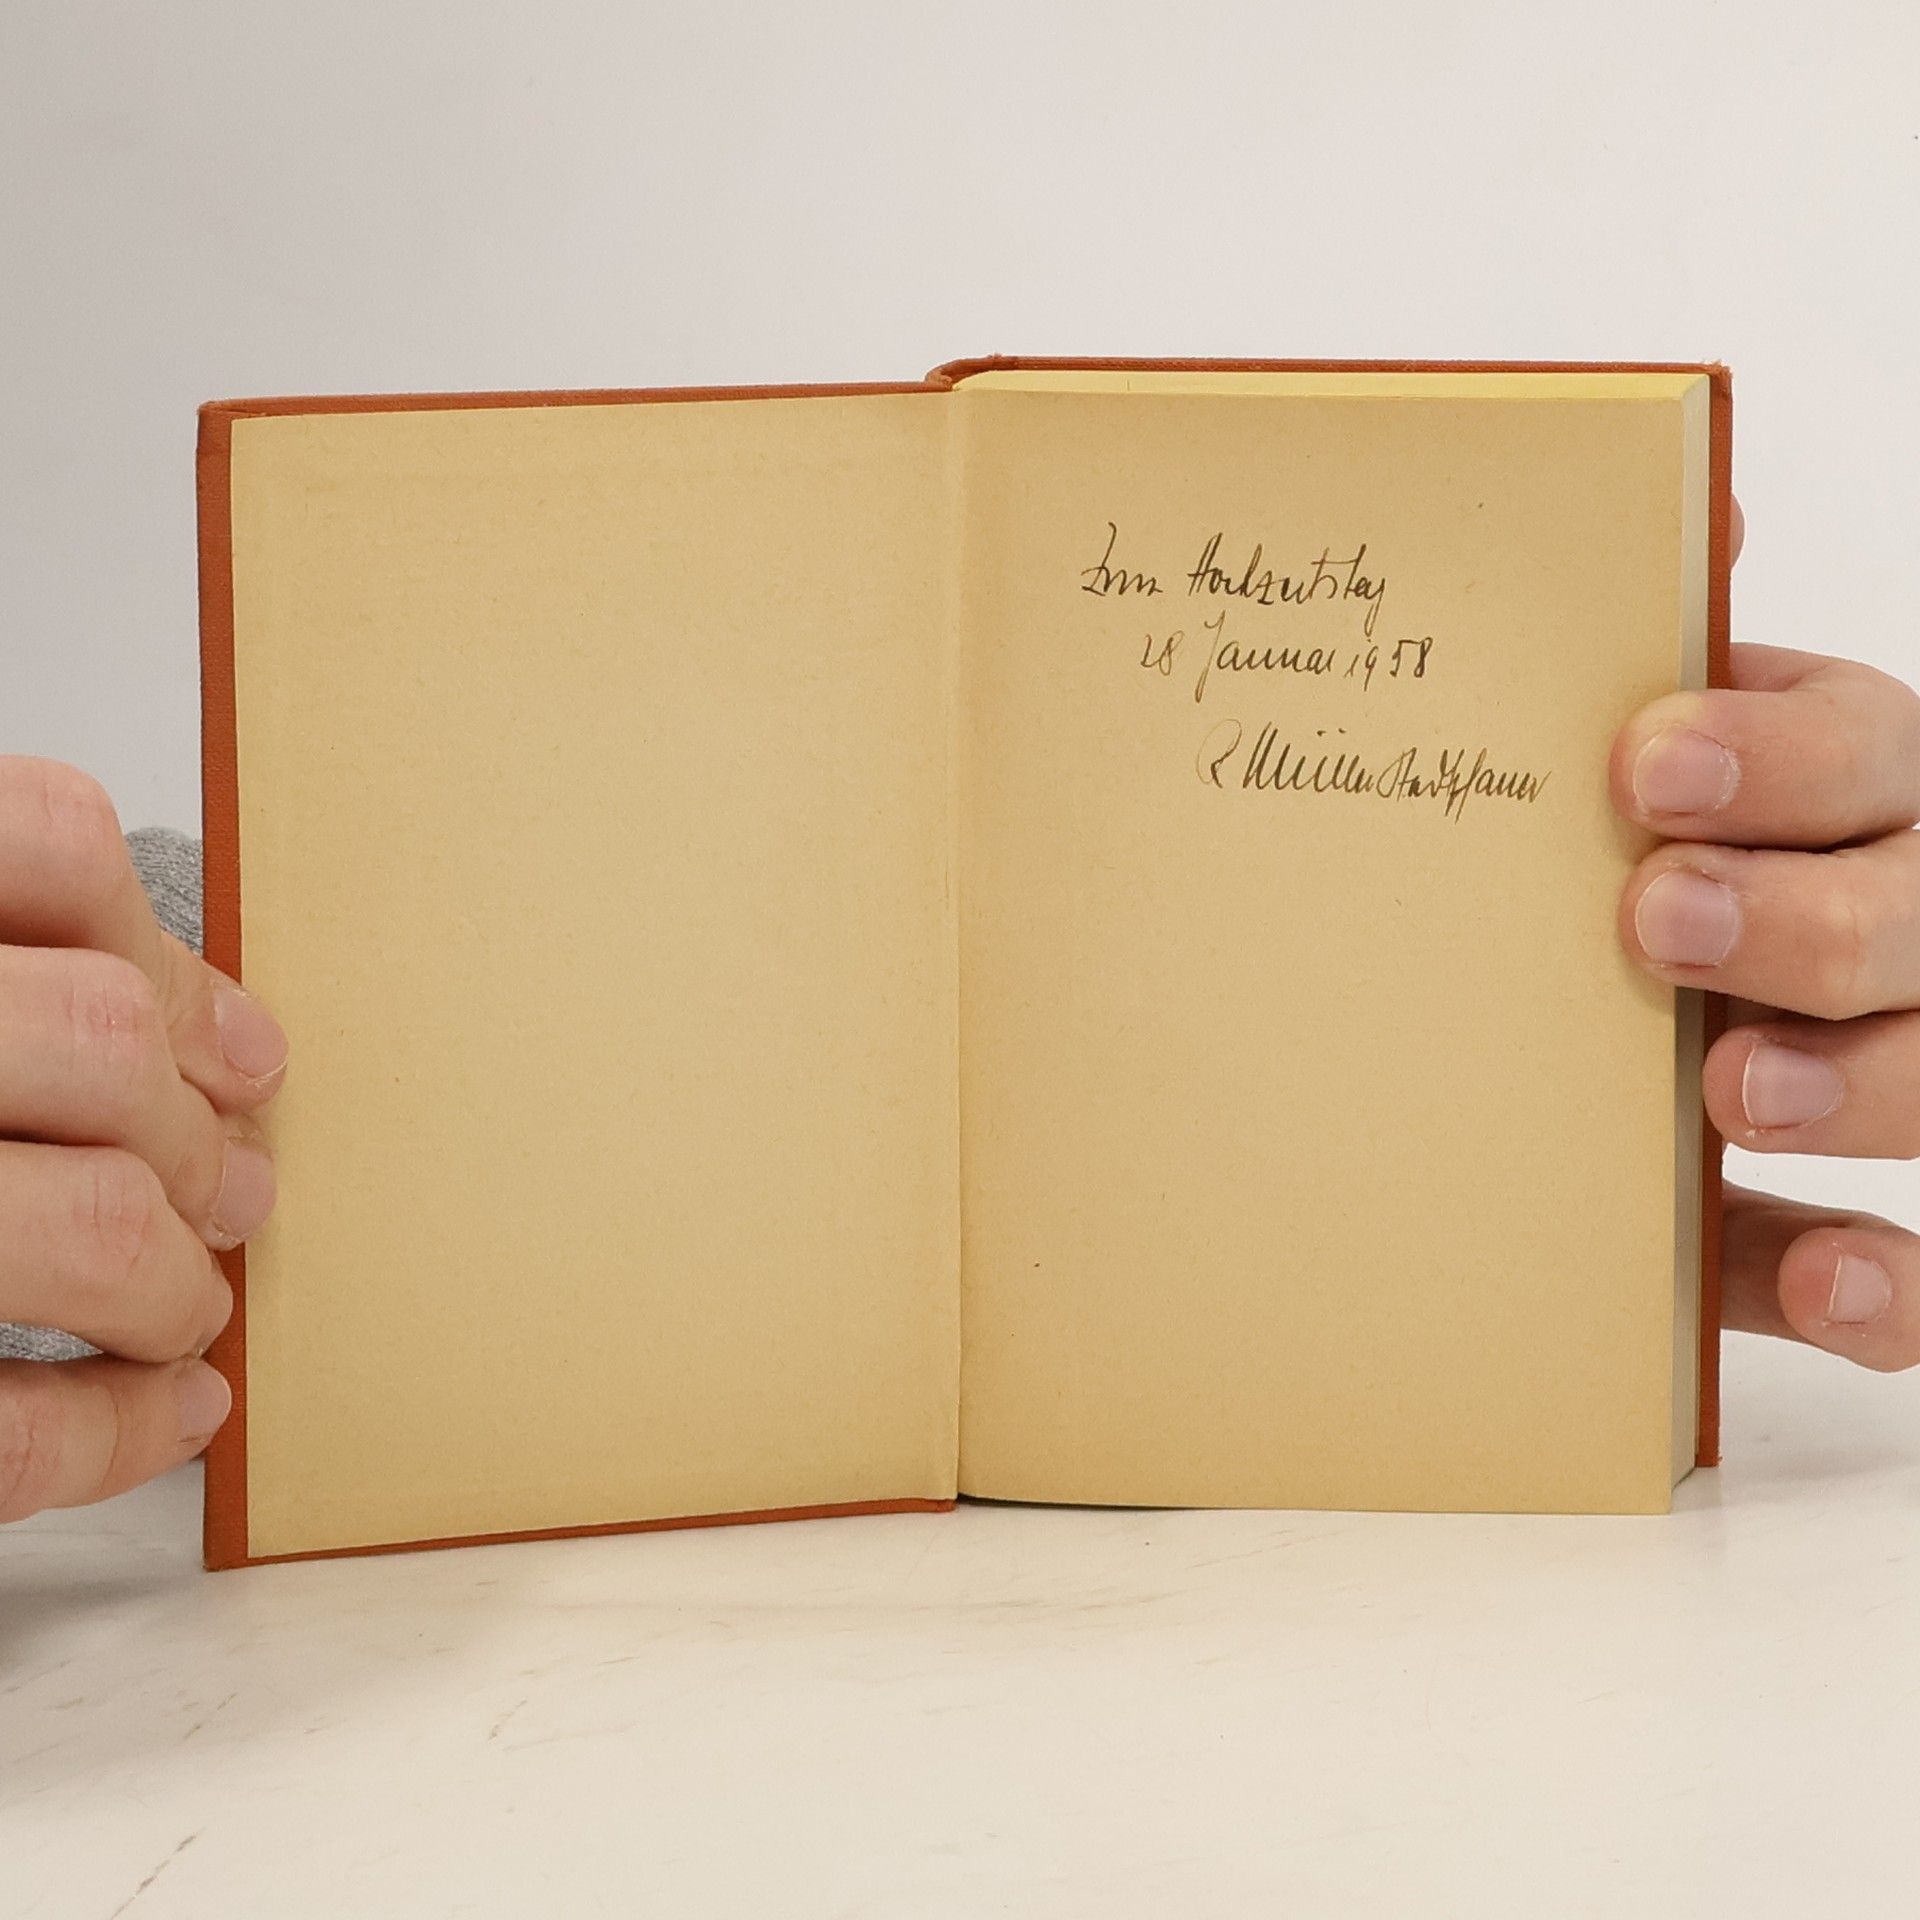 Zum Hochzeitstag
28 Januar 1958
R Müller Stadtpfarrer